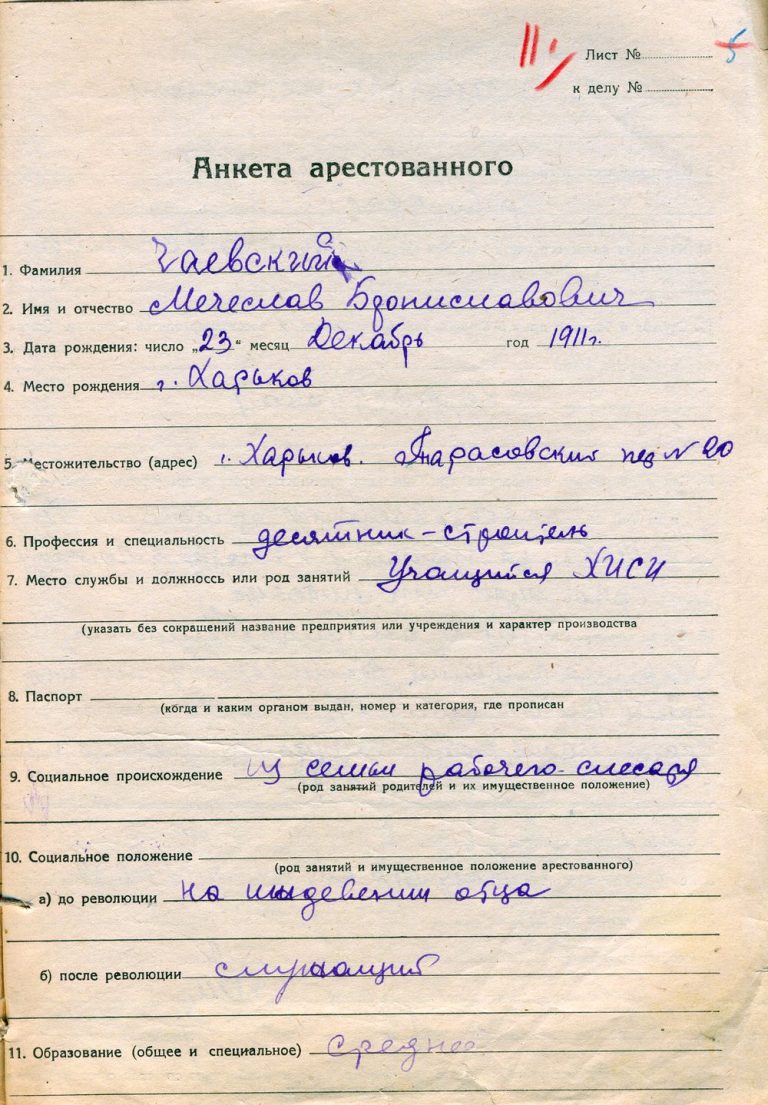 11.
Лист № 5
к делу №
Анкета арестованного
1. Фамилия Чаевский
2. Имя и отчество Мечеслав Брониславович
3. Дата рождения: число „23“ месяц Декабрь год 1911 г.
4. Место рождения г. Харьков
5. Местожительство (адрес) г. Харьков. Тарасовский пер № 20
6. Профессия и специальность десятник-строитель
7. Место службы и должноссь или род занятий Учащийся ХИСИ
(указать без сокращений название предприятия или учреждения и характер производства
8. Паспорт
(когда и каким органом выдан, номер и категория, где прописан
9. Социальное происхождение из семьи рабочего-слесаря
(род занятий родителей и их имущественное положение)
10. Социальное положение
(род занятий и имущественное положение арестованного)
а) до революции на иждевении отца
б) после революции служащий
11. Образование (общее и специальное) среднее